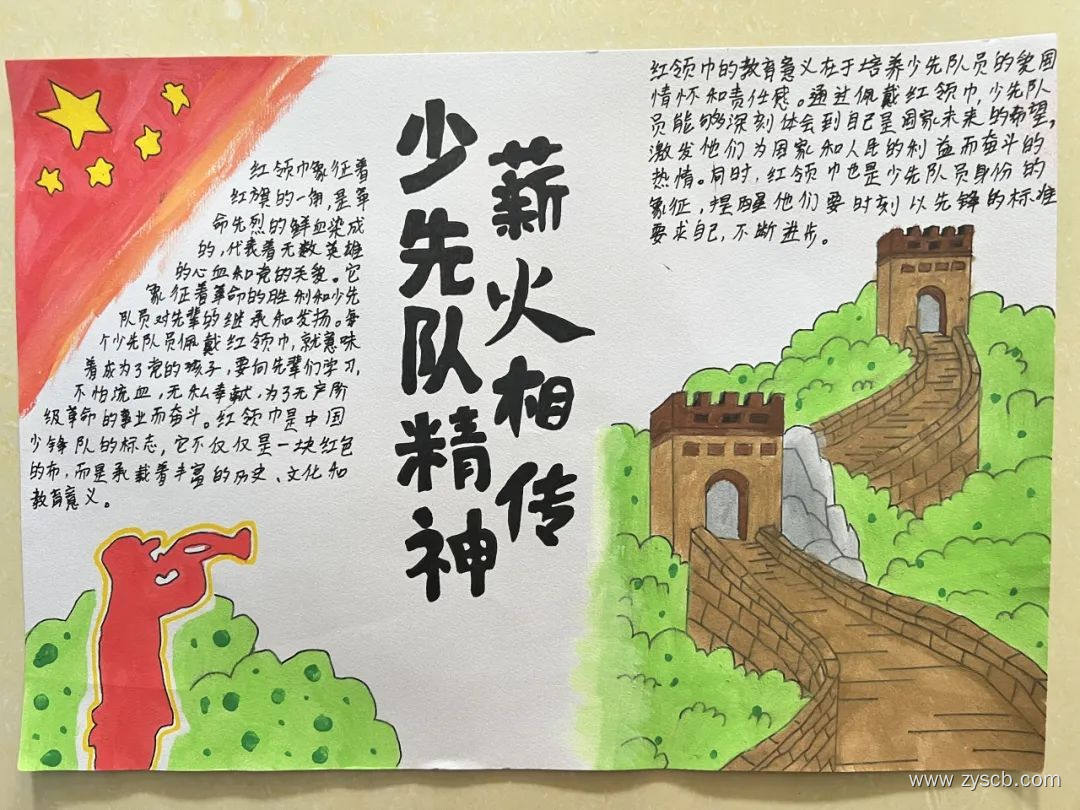 少先队精神
薪火相传
红领巾象征着
红旗的一角,是革
命先烈的鲜血染成
的,代表着无数英雄
的心血和党的关爱。它
象征着革命的胜利和少先
队员对先辈的继承和发扬。每
个少先队员佩戴红领巾,就意味
着成为了党的孩子,要向先辈们学习,
不怕流血,无私奉献,为了无产阶
级革命的事业而奋斗。红领巾是中国
少锋队的标志,它不仅仅是一块红色
的布,而是承载着丰富的历史、文化和
教育意义。
红领巾的教育意义在于培养少先队员的爱国
情怀和责任感。通过佩戴红领巾,少先队
员能够深刻体会到自己是国家未来的希望,
激发他们为国家和人民的利益而奋斗的
热情。同时,红领巾也是少先队员身份的
象征,提醒他们要时刻以先锋的标准
要求自己,不断进步。
www.zyscb.com